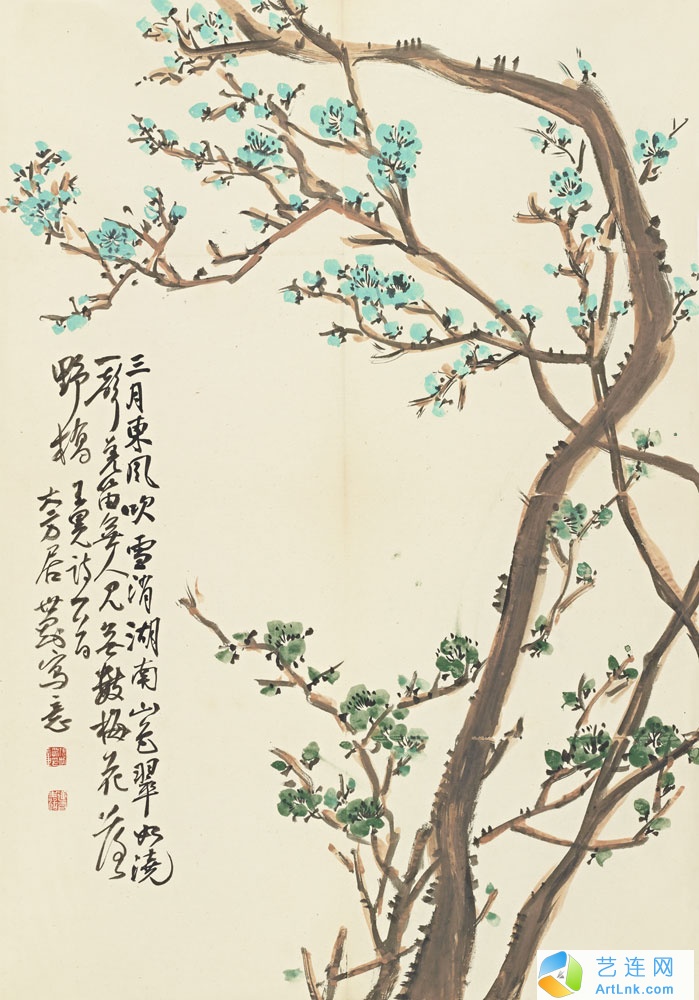 三月東風吹雪消湖南山色翠如澆
一聲羌笛無人見無數梅花落
野橋 王冕詩
大方居 寫意
艺连网
ArtLnk.com